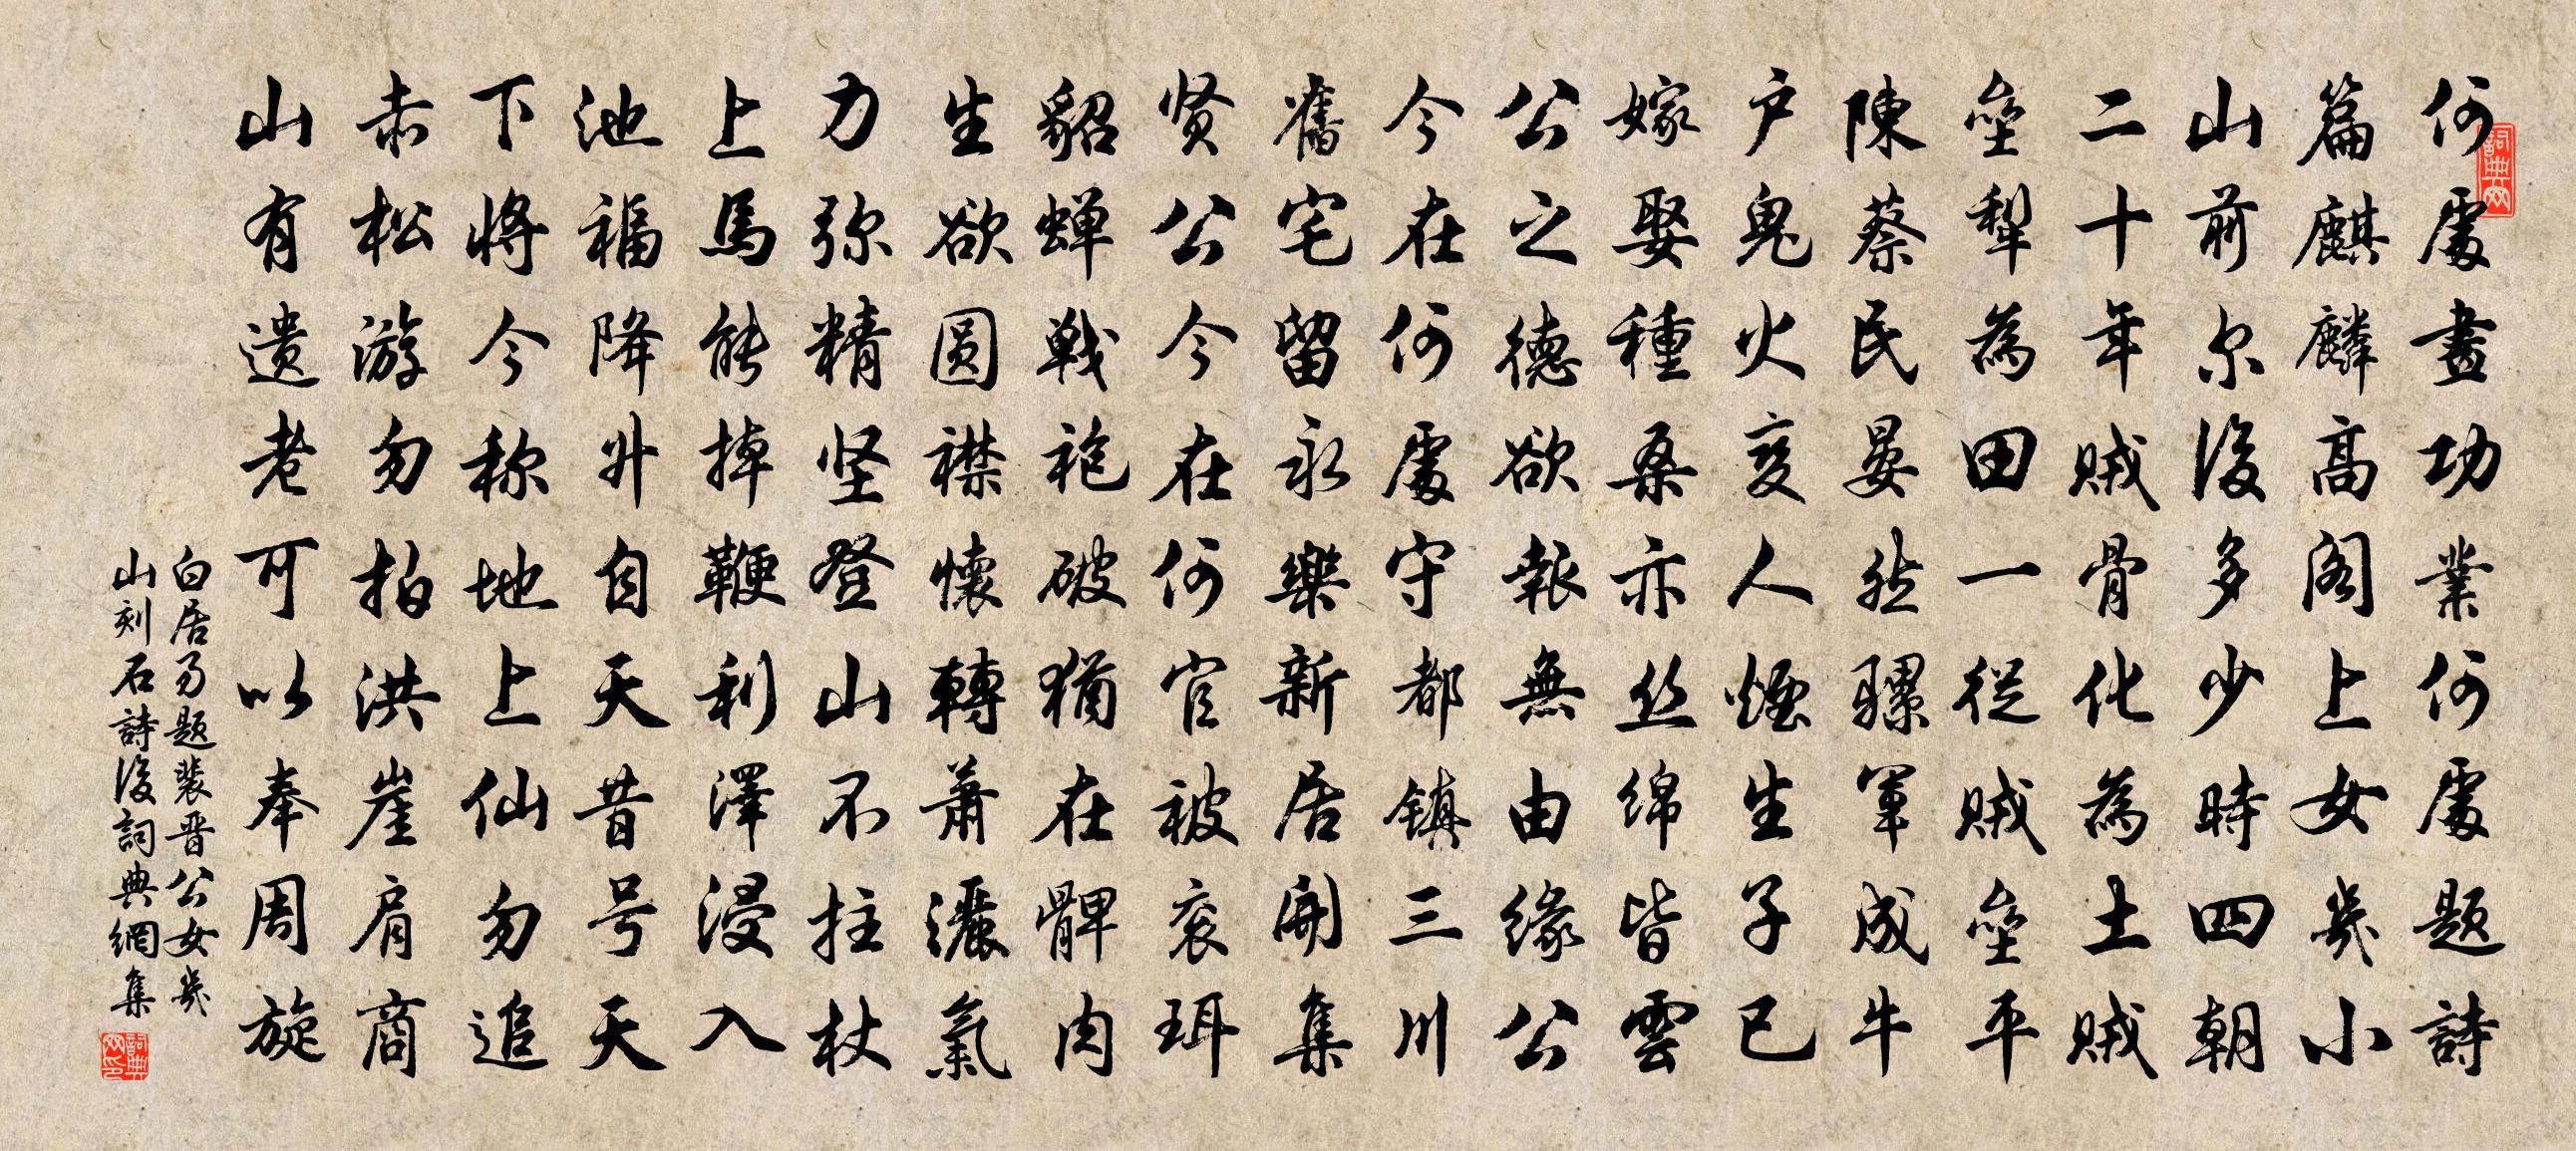 何處畫功業何處题詩
篇麒麟高阁上女幾小
山前尔後多少時四朝
二十年贼骨化為土贼
壘犁為田一從贼壘平
陳蔡民晏然骡軍成牛
户鬼火变人煙生子已
嫁娶種桑亦丝绵皆雲
公之德欲報無由緣公
今在何處守都镇三川
舊宅留永樂新居開集
贤公今在何官被衮珥
貂蝉戰袍破猶在髀肉
生欲圆襟懷轉萧灑氣
力弥精坚登山不拄杖
上馬能掉鞭利澤浸入
池福降升自天昔号天
下將今称地上仙勿追
赤松游勿拍洪崖肩商
山有遗老可以奉周旋
白居易题裴晋公女幾
山刻石詩後詞典網集
詞典网
詞典网印